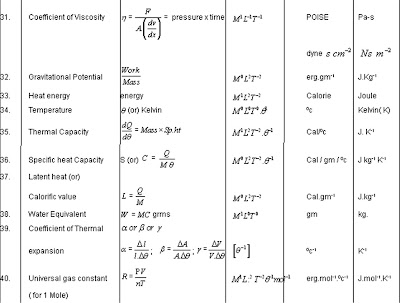 31. Coefficient of Viscosity η = F / A(dv/dx) = pressure x time M¹L⁻¹T⁻¹ POISE Pa-s
dyne s cm⁻² Ns m⁻²
32. Gravitational Potential Work/Mass M⁰L²T⁻² erg.gm⁻¹ J.Kg⁻¹
33. Heat energy energy M¹L²T⁻² Calorie Joule
34. Temperature θ (or) Kelvin M⁰L⁰T⁰.θ¹ ⁰c Kelvin(K)
35. Thermal Capacity dQ/dθ = Mass × Sp.ht M¹L²T⁻².θ⁻¹ Cal/⁰c J. K⁻¹
36. Specific heat Capacity S (or) C = Q/Mθ M⁰L²T⁻².θ⁻¹ Cal / gm / ⁰c J kg⁻¹ K⁻¹
37. Latent heat (or)
Calorific value L = Q/M M⁰L²T⁻² Cal.gm⁻¹ J.kg⁻¹
38. Water Equivalent W = MC grms M¹L⁰T⁰ gm kg.
39. Coefficient of Thermal α or β or γ
expansion α = Δl/l.Δθ, β = ΔA/A.Δθ, γ = ΔV/V.Δθ [θ⁻¹] ⁰c⁻¹ K⁻¹
40. Universal gas constant R = PV/nT M¹L.² T⁻²θ⁻¹mol⁻¹ erg.mol⁻¹.⁰c⁻¹ J.mol⁻¹.K⁻¹
(for 1 Mole)